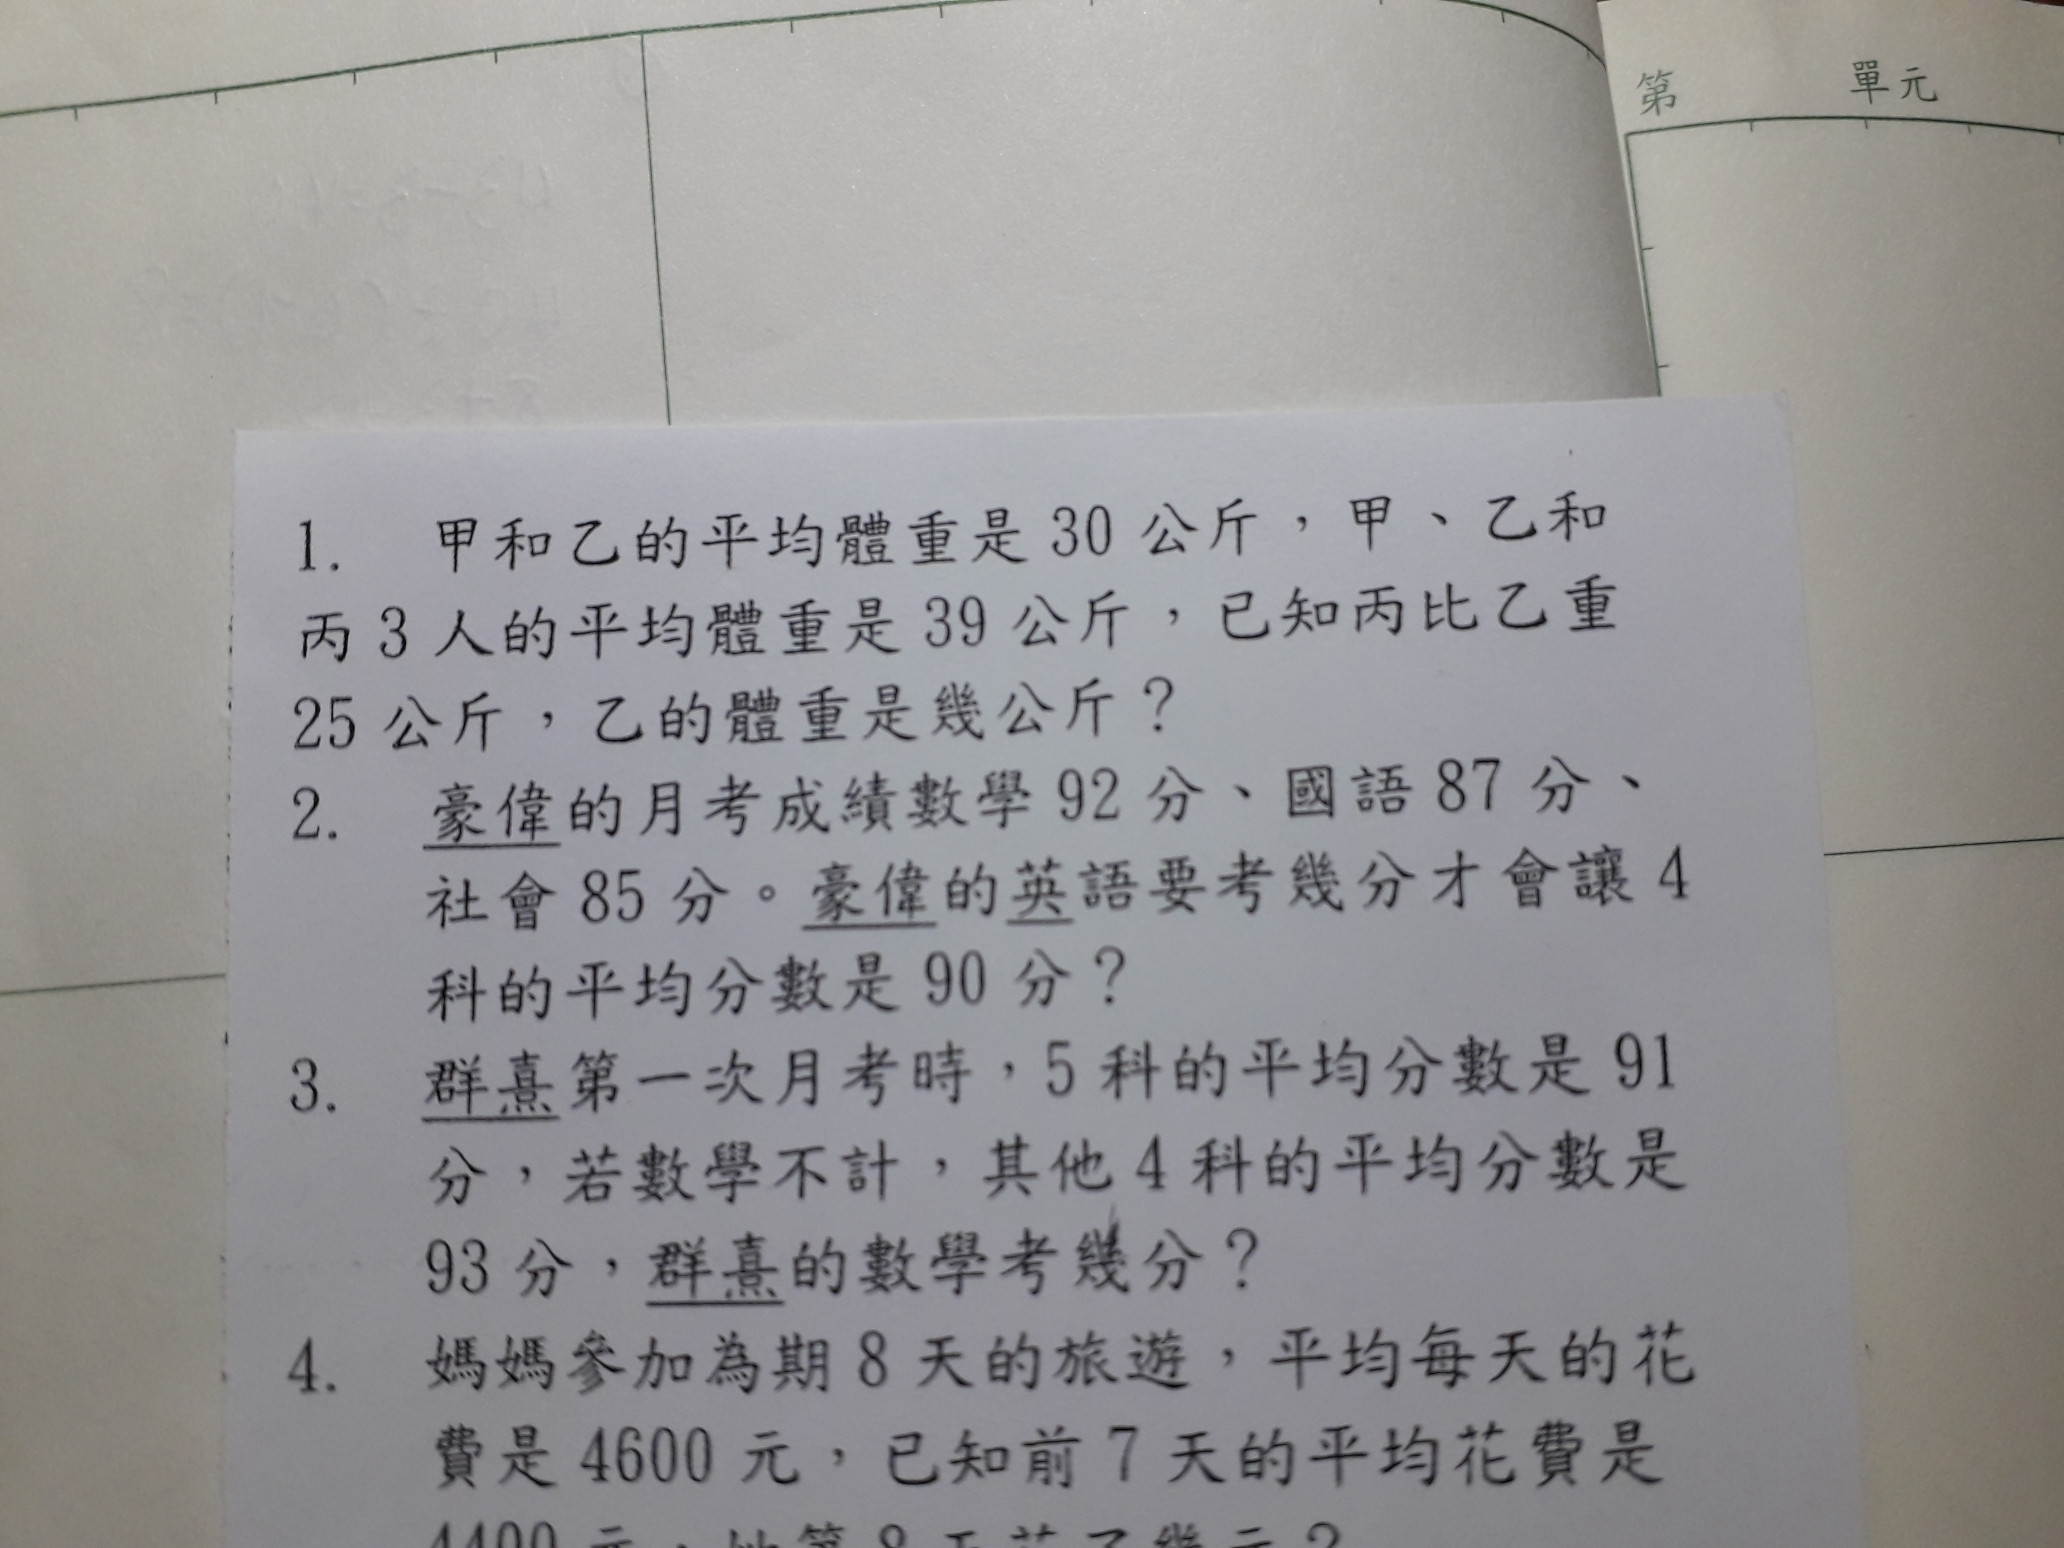 第 單元
1. 甲和乙的平均體重是 30 公斤，甲、乙和
丙 3 人的平均體重是 39 公斤，已知丙比乙重
25 公斤，乙的體重是幾公斤？
2. 豪偉的月考成績數學 92 分、國語 87 分、
社會 85 分。豪偉的英語要考幾分才會讓 4
科的平均分數是 90 分？
3. 群熹第一次月考時，5 科的平均分數是 91
分，若數學不計，其他 4 科的平均分數是
93 分，群熹的數學考幾分？
4. 媽媽參加為期 8 天的旅遊，平均每天的花
費是 4600 元，已知前 7 天的平均花費是
4400 元，她第 8 天花了幾元？